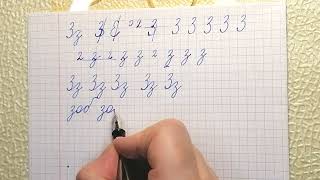 Зз З З З З З З З
з з з з з з з
Зз Зз Зз Зз Зз
зоб зо